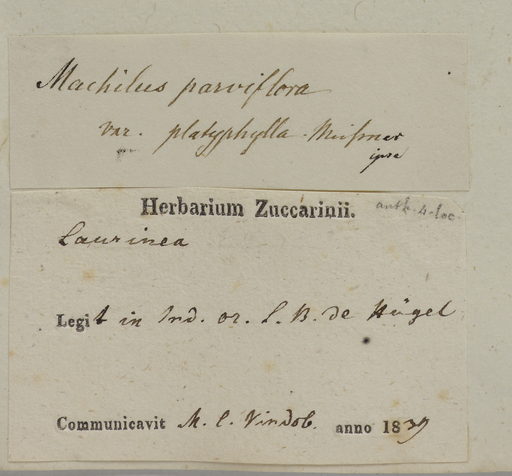 Machilus parviflora
var. platyphylla. Meißner
ipse
Herbarium Zuccarinii.
anth. 4-loc.
Laurinea
Legit in Ind. or. L. B. de Hügel
Communicavit M. C. Vindob. anno 1839